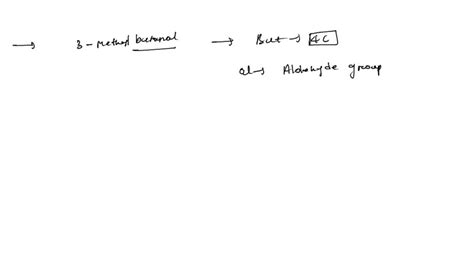 → 3-Methyl butanal → But → 4C
al → Aldehyde group